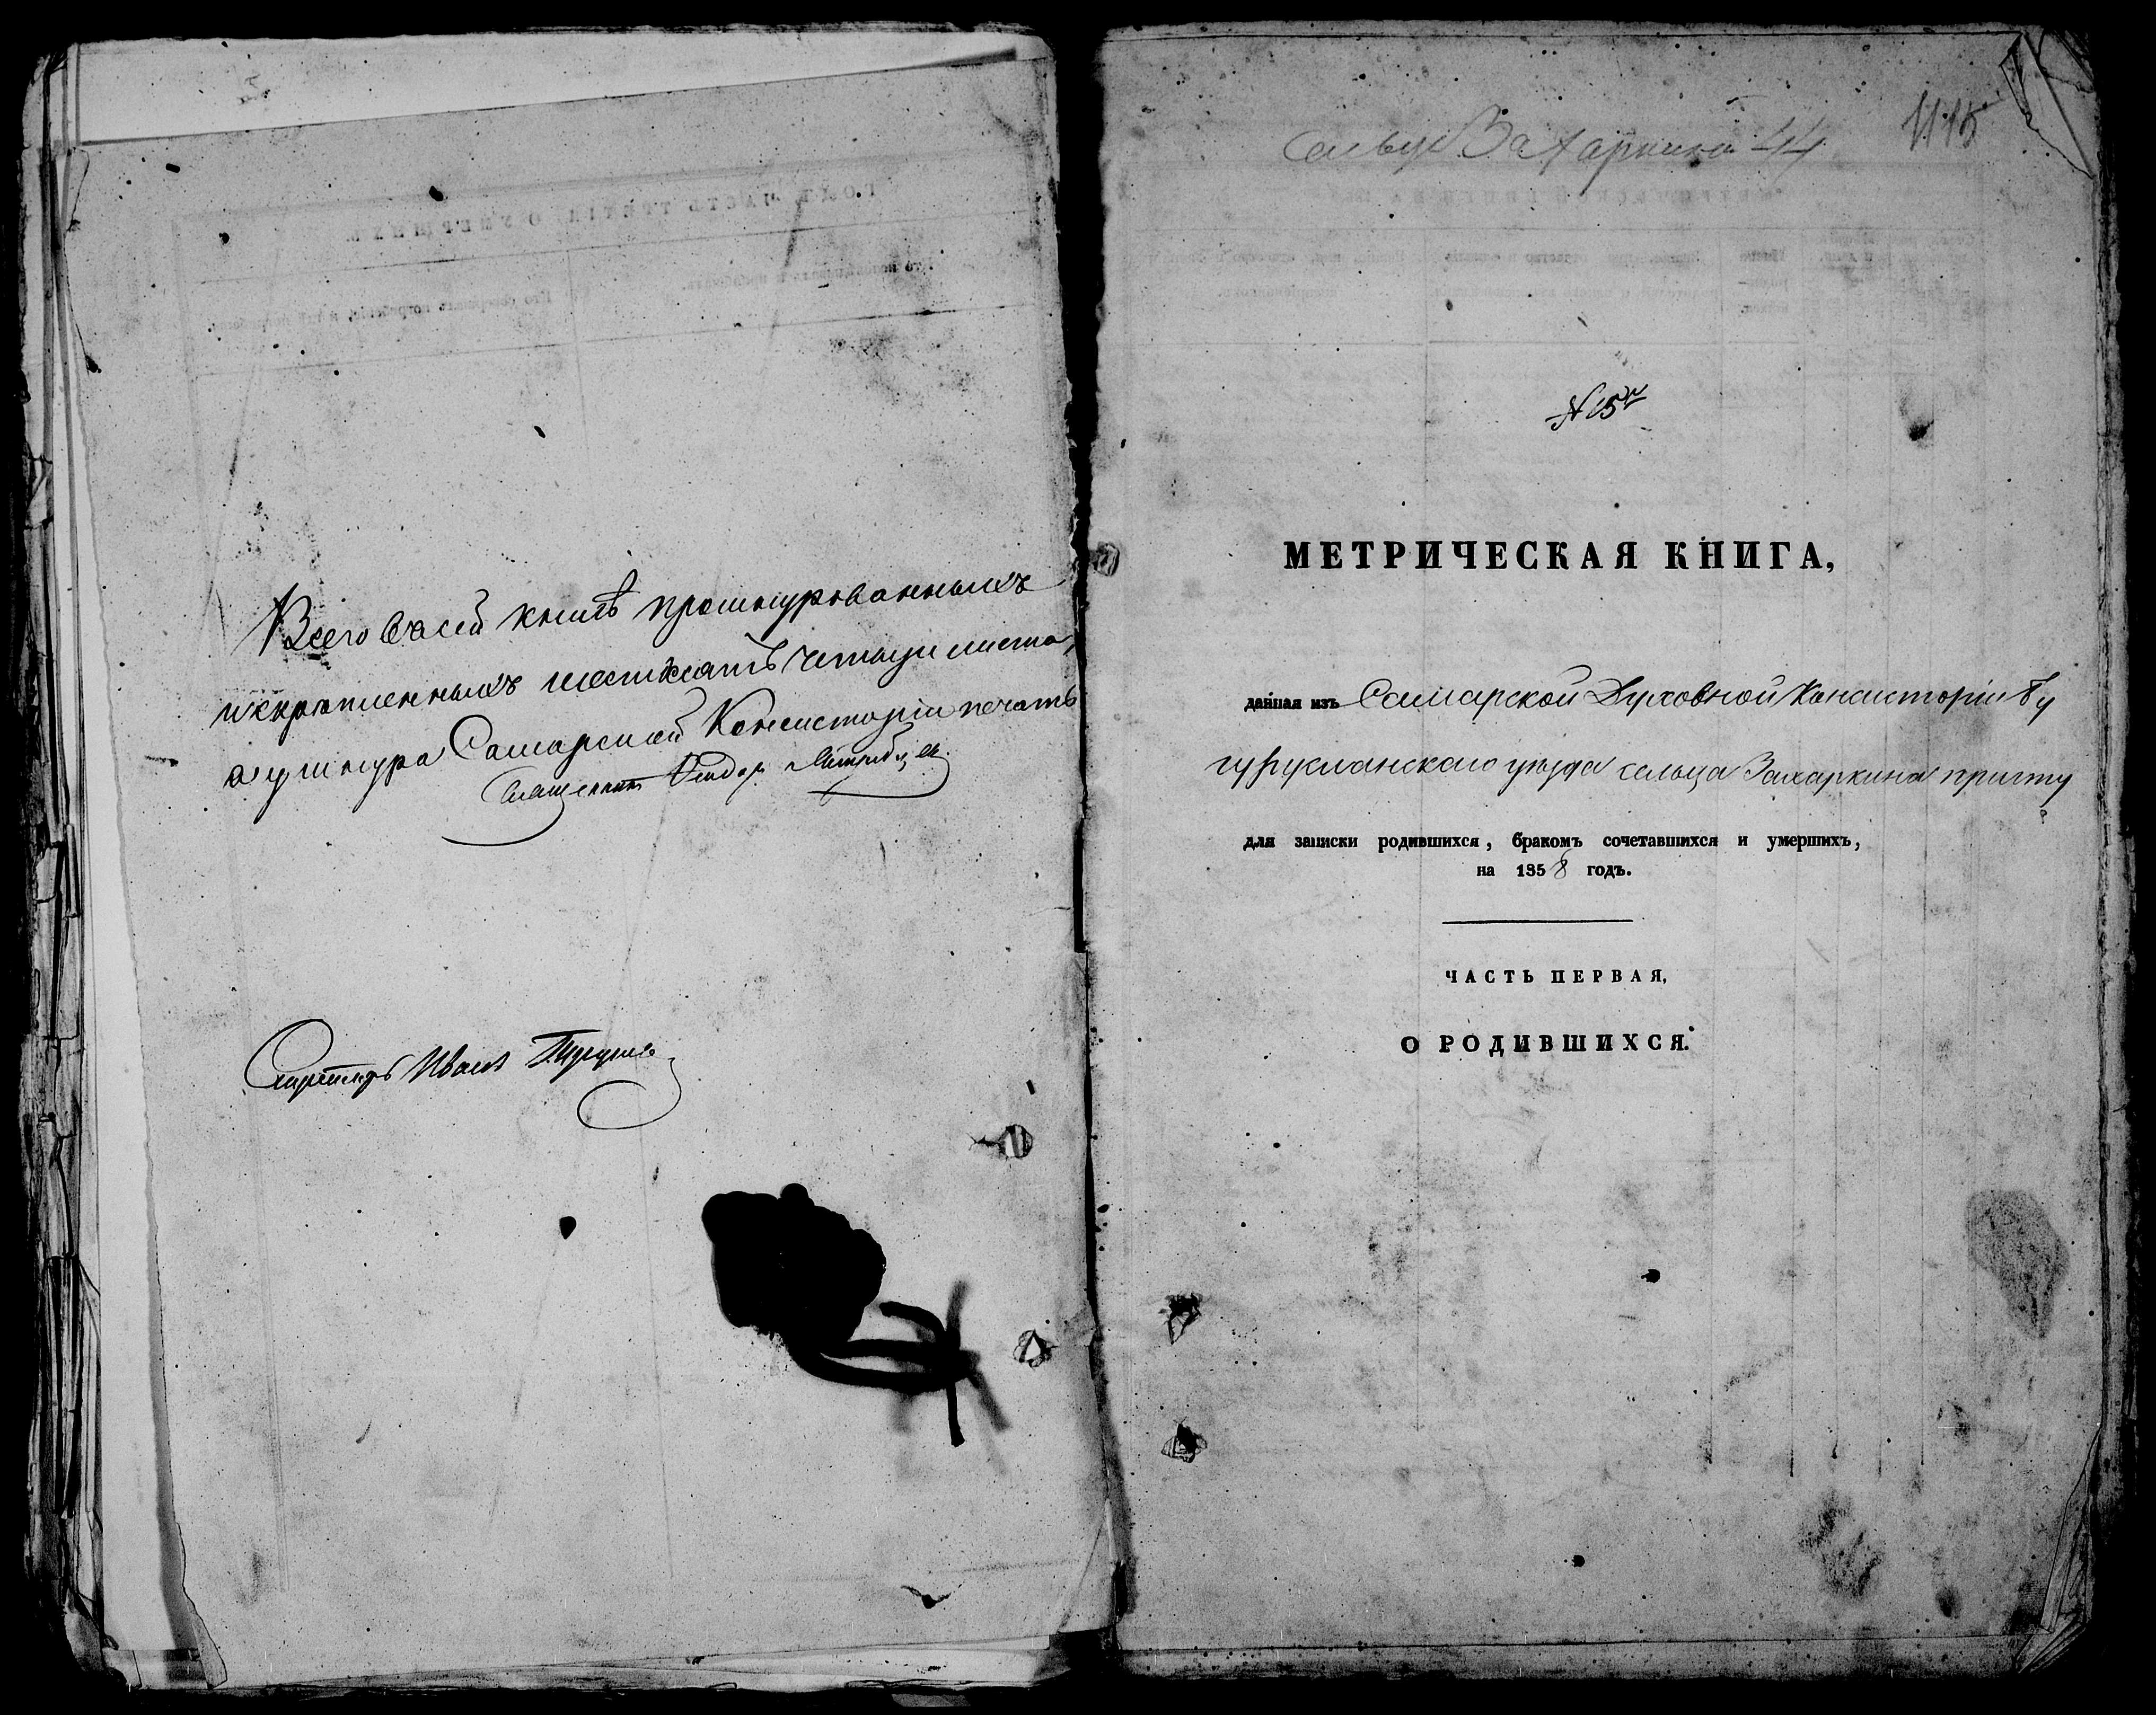 Всего въ сей книгѣ прошнурованныхъ
и скрѣпленныхъ шестьдесятъ четыре листа,
а у шнура Самарской Консисторіи печать
Священникъ
Секретарь Иванъ
сельцо Захаркина 44
1115
№ 15й
МЕТРИЧЕСКАЯ КНИГА,
данная изъ Самарской Духовной Консисторіи Бу
гурусланскаго уѣзда сельца Захаркина причту
для записки родившихся, бракомъ сочетавшихся и умершихъ,
на 1858 годъ.
ЧАСТЬ ПЕРВАЯ,
О РОДИВШИХСЯ.